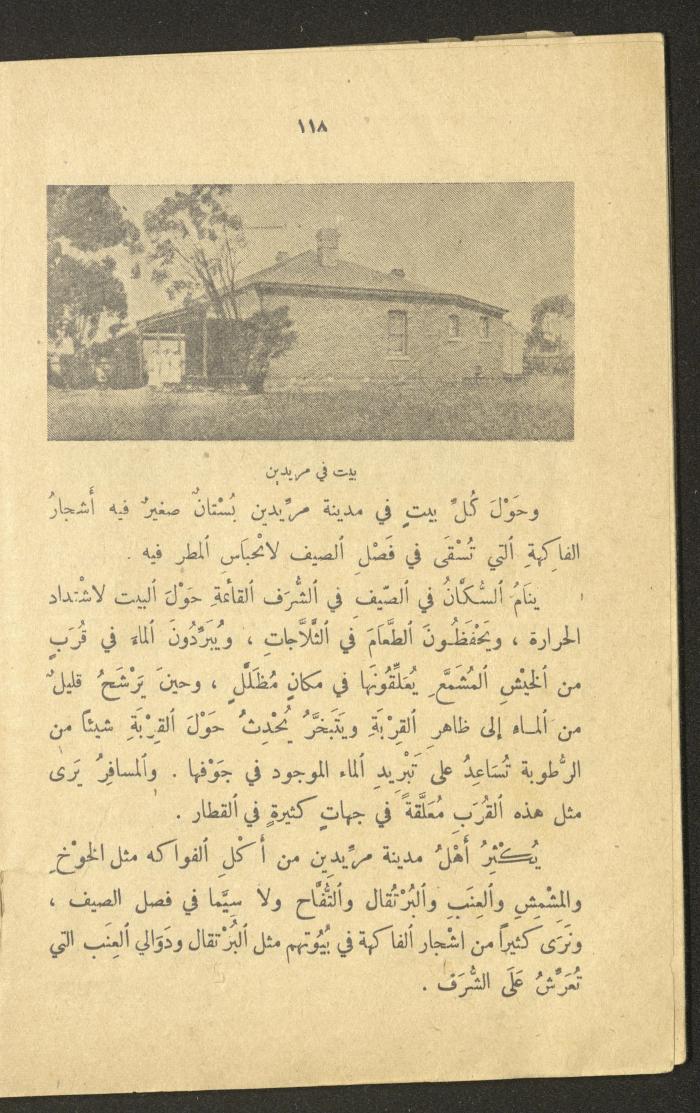 ١١٨
بيت في مريدين
وحَوْلَ كُلِّ بيتٍ في مدينة مرِّيدين بُسْتانٌ صغيرٌ فيه أشجارُ
الفاكِهةِ ٱلتي تُسْقَى في فَصْلِ ٱلصيف لانْحبَاس ٱلمطر فيه .
ينَامُ ٱلسُّكَّانُ في ٱلصّيف في ٱلشُّرَف ٱلقائمةِ حَوْلَ ٱلبيت لاشْتداد
الحرارة ، ويَحْفَظُونَ ٱلطَّعَامَ في ٱلثَّلَّاجاتِ ، ويُبَرِّدُونَ ٱلماءَ في قُرَبٍ
من ٱلخَيْشِ ٱلمُشَمَّعِ يُعَلِّقُونَها في مكانٍ مُظَلَّلٍ ، وحينَ يَرْشَحُ قليلٌ
من ٱلمـاء إلى ظاهر ٱلقِرْبَةِ ويَتَبَخَّرُ يُحْدِثُ حَوْلَ ٱلقِرْبَةِ شيئاً من
الرُّطوبة تُسَاعِدُ على تَبْرِيدِ ٱلماء الموجود في جَوْفها . وٱلمسافِرُ يَرَى
مثل هذه ٱلقُرَبِ مُعَلَّقةً في جهاتٍ كثيرةٍ في ٱلقطار .
يُكْثِرُ أَهْلُ مدينة مرِّيدين من أَكْلِ ٱلفواكه مثل الخوْخِ
والمِشْمِشِ وٱلعِنَبِ وٱلبُرْتُقال وٱلتُّفَّاح ولا سِيَّما في فصل الصيف ،
ونَرَى كثيراً من اشْجار ٱلفاكهة في بُيُوتهم مثل ٱلبُرْتقال ودَوَالي ٱلعِنَب التي
تُعَرِّشُ عَلَى الشُّرَف .